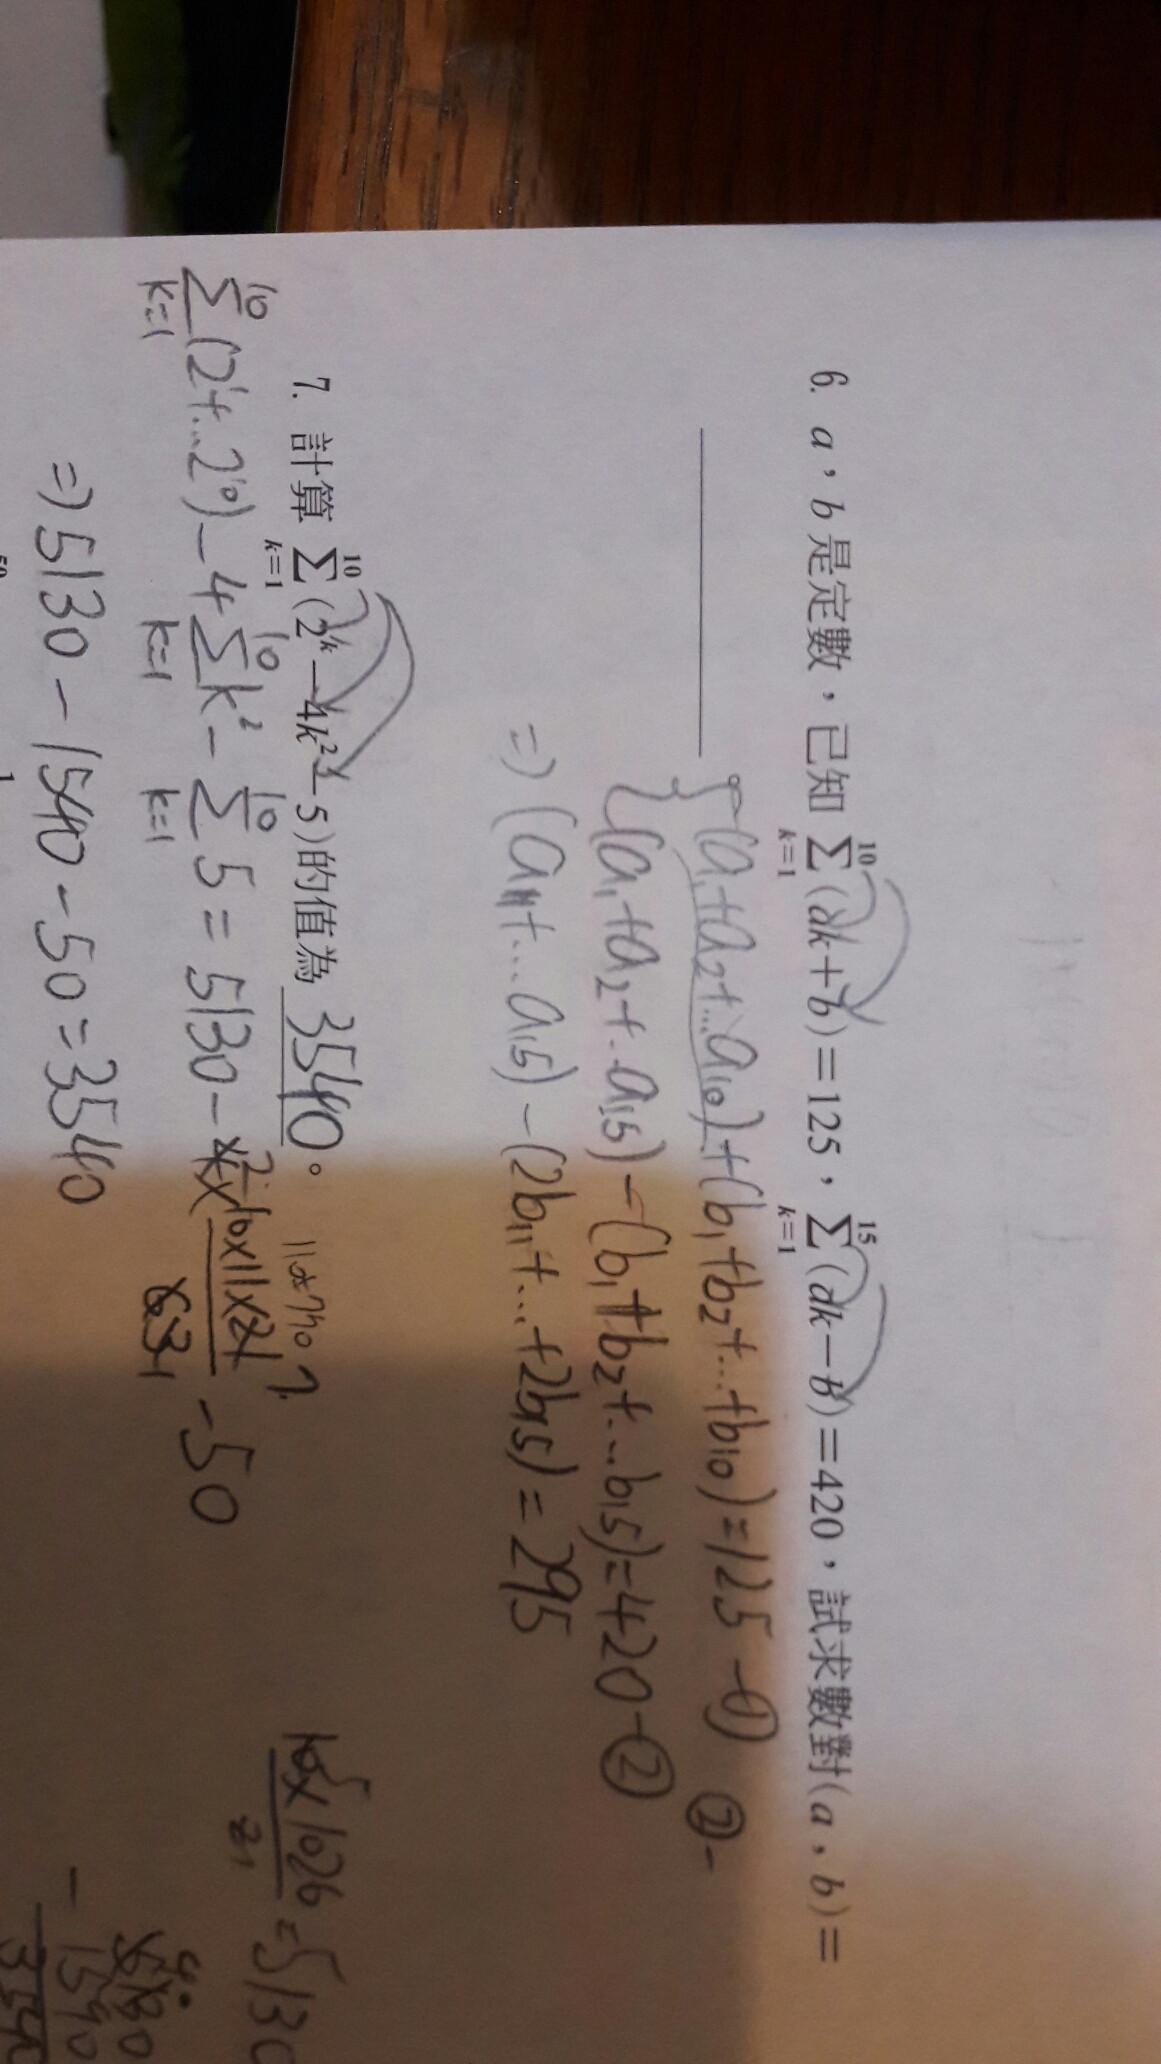 6. a，b是定數，已知 \sum_{k=1}^{10}(ak+b)=125，\sum_{k=1}^{15}(ak-b)=420，試求數對(a，b)=
{(a₁+a₂+...a₁₀)+(b₁+b₂+...+b₁₀)=125 -① ②-
{(a₁+a₂+..a₁₅)-(b₁+b₂+...b₁₅)=420-②
=)(a₁₁+...a₁₅)-(2b₁₁+...+2b₁₅)=295
7. 計算 \sum_{k=1}^{10}(2^k-4k²-5)的值為 3540。
\sum_{k=1}^{10}(2¹+...2¹⁰)-4\sum_{k=1}^{10}k²-\sum_{k=1}^{10}5=5130-
10×11×21
-50
=)5130-1540-50=3540
10×1026
=5130
1540
3540